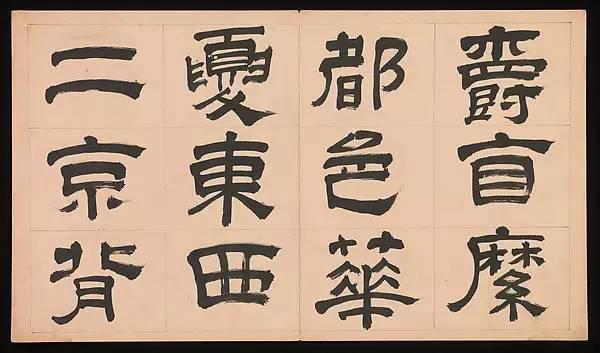 爵自縻
都邑華
夏東西
二京背